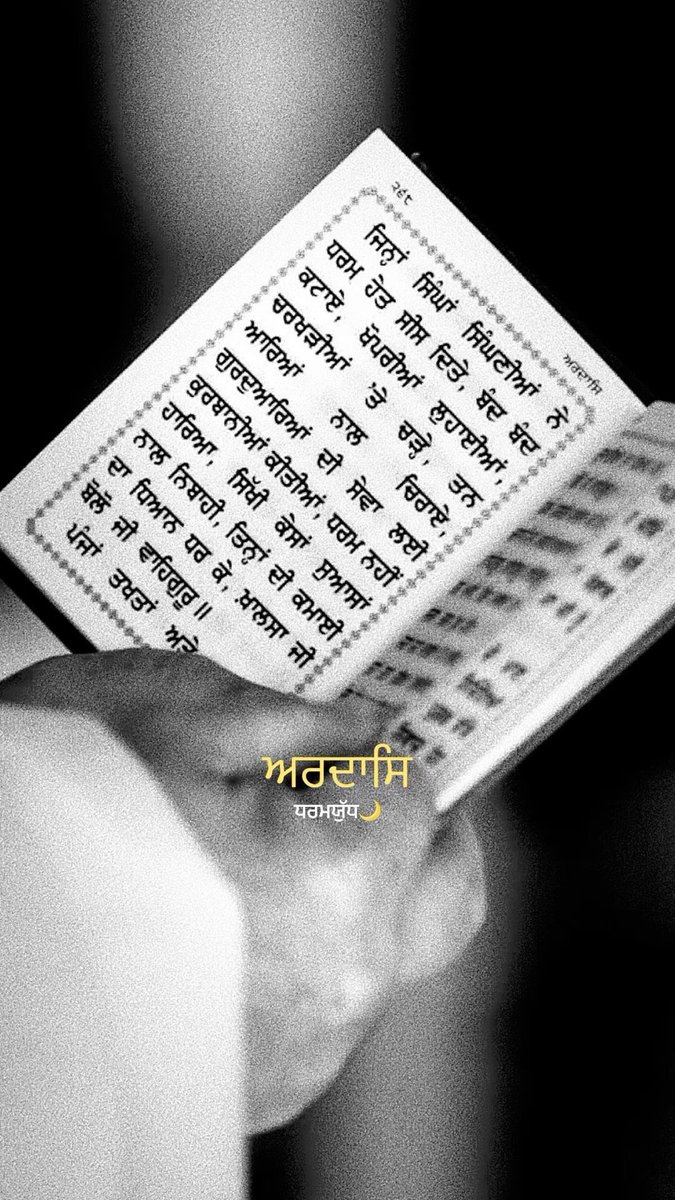 ੨੬੮
ਅਰਦਾਸਿ
ਜਿਨ੍ਹਾਂ ਸਿੰਘਾਂ ਸਿੰਘਣੀਆਂ ਨੇ
ਧਰਮ ਹੇਤ ਸੀਸ ਦਿਤੇ, ਬੰਦ ਬੰਦ
ਕਟਾਏ, ਖੋਪਰੀਆਂ ਲੁਹਾਈਆਂ,
ਚਰਖੜੀਆਂ 'ਤੇ ਚੜ੍ਹੇ, ਤਨ
ਆਰਿਆਂ ਨਾਲ ਚਿਰਾਏ,
ਗੁਰਦੁਆਰਿਆਂ ਦੀ ਸੇਵਾ ਲਈ
ਕੁਰਬਾਨੀਆਂ ਕੀਤੀਆਂ, ਧਰਮ ਨਹੀਂ
ਹਾਰਿਆ, ਸਿੱਖੀ ਕੇਸਾਂ ਸੁਆਸਾਂ
ਨਾਲ ਨਿਬਾਹੀ, ਤਿਨ੍ਹਾਂ ਦੀ ਕਮਾਈ
ਦਾ ਧਿਆਨ ਧਰ ਕੇ, ਖ਼ਾਲਸਾ ਜੀ
ਬੋਲੋ ਜੀ ਵਾਹਿਗੁਰੂ॥
ਪੰਜਾਂ ਤਖਤਾਂ
ਅਰਦਾਸਿ
ਧਰਮਯੁੱਧ🌙